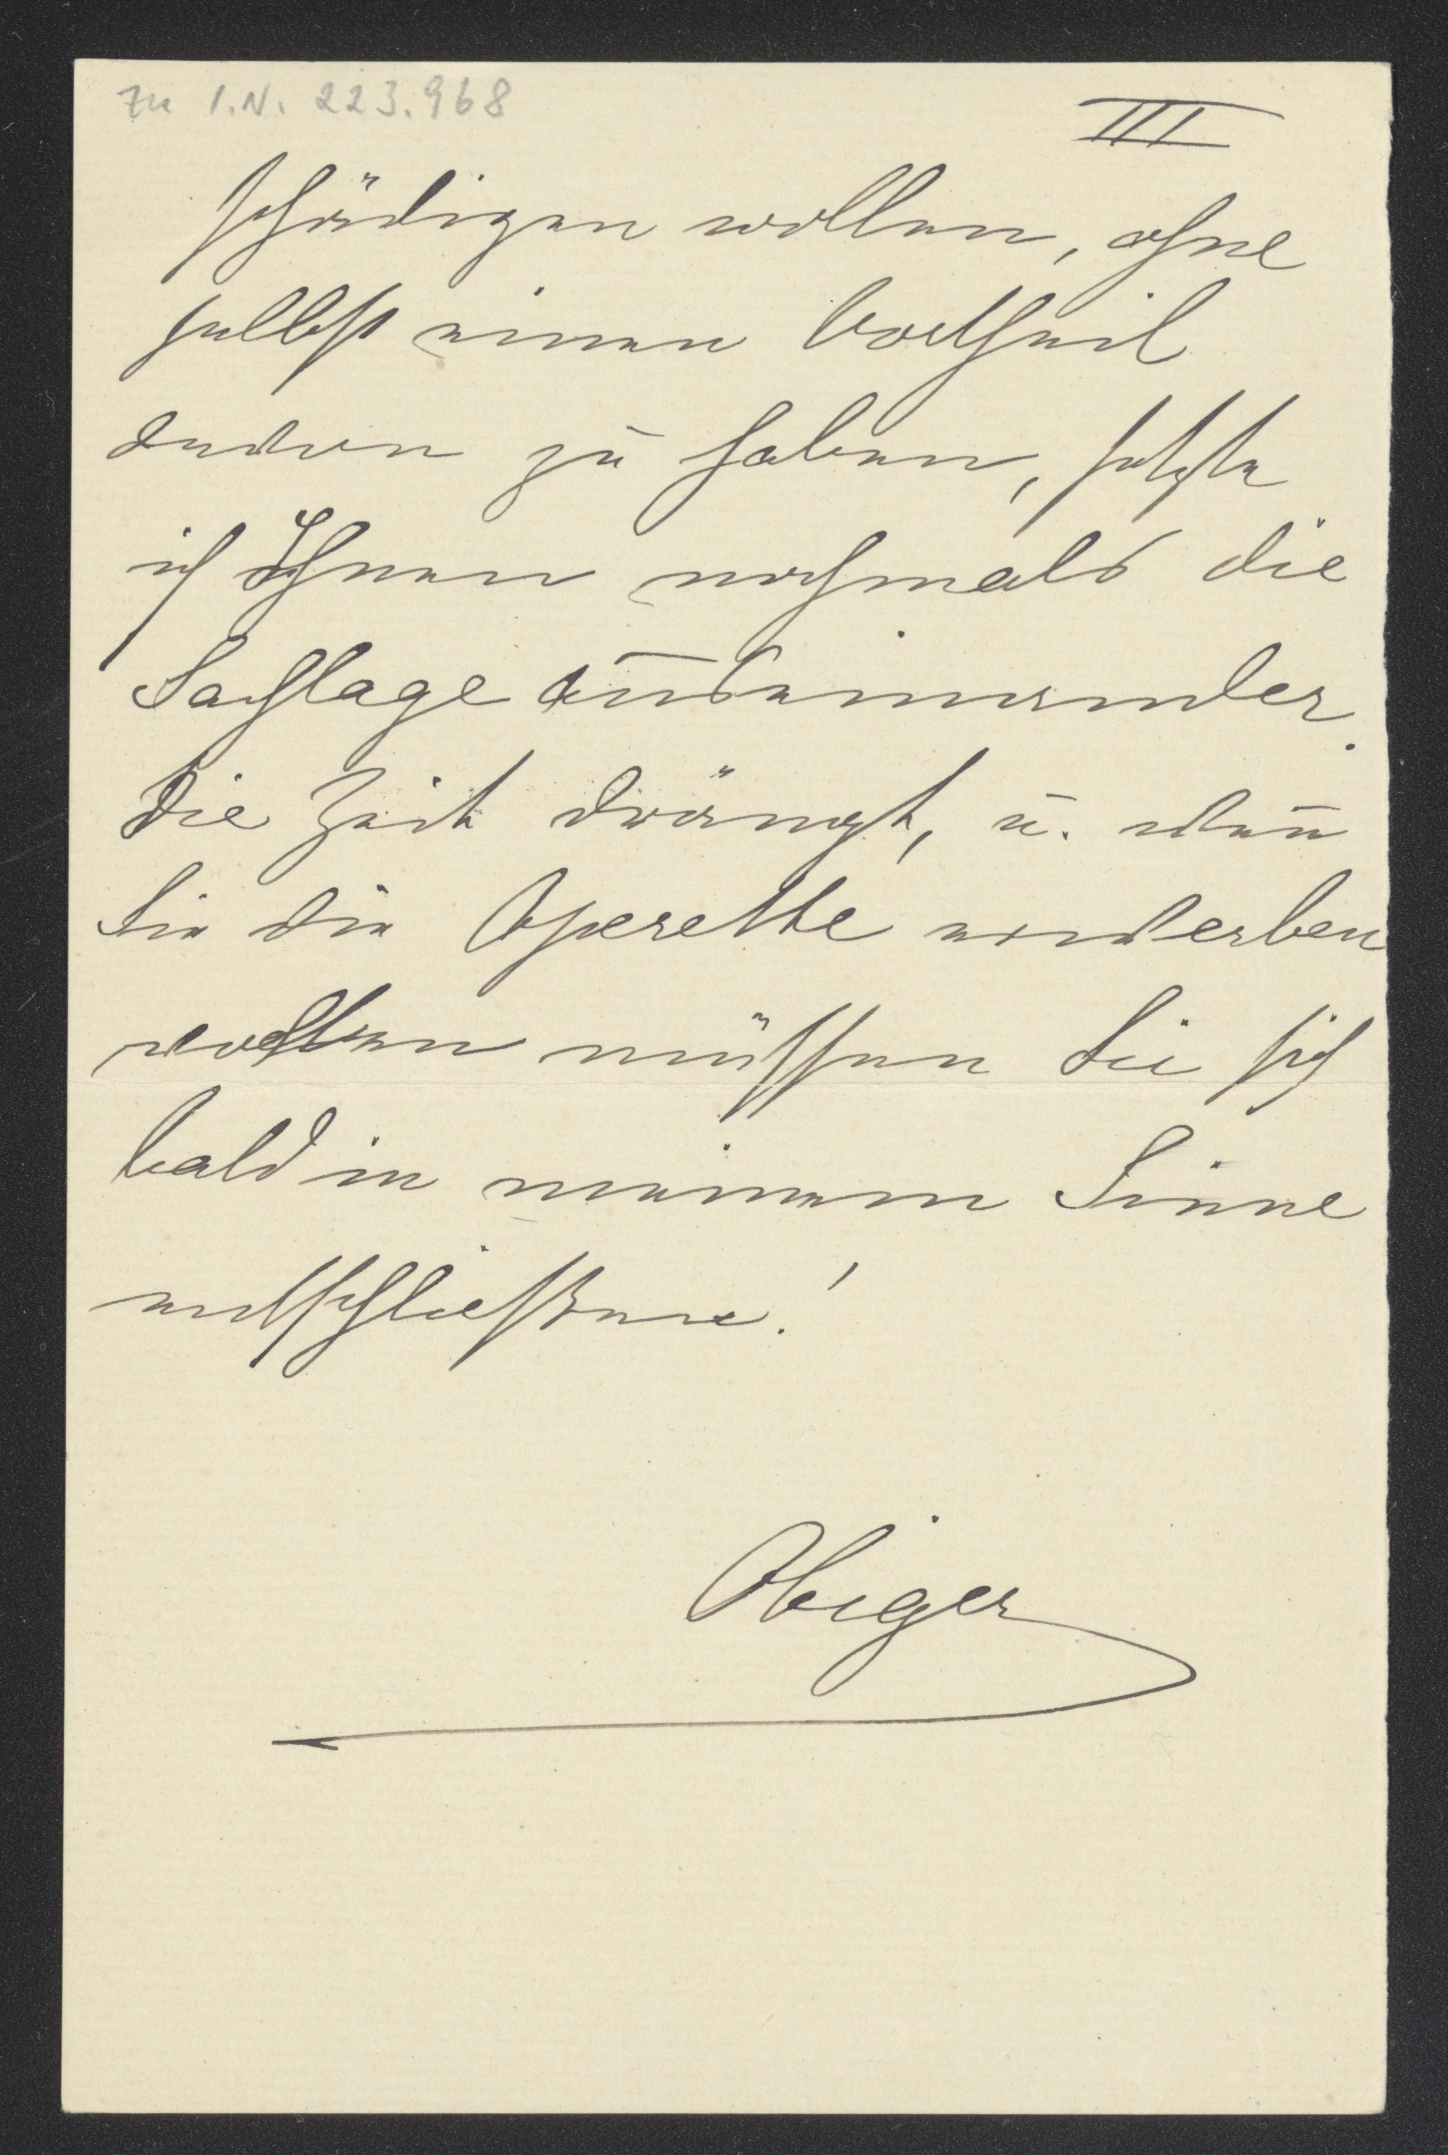 zu I.N. 223.968
III
schädigen wollen, ohne
selbst einen Vortheil
davon zu haben, setzte
ich Ihnen nochmals die
Sachlage auseinander.
Die Zeit drängt, u. wen̅
Sie die Operette erwerben
wollen müssen Sie sich
bald in meinem Sinne
entschließen!
Obiger